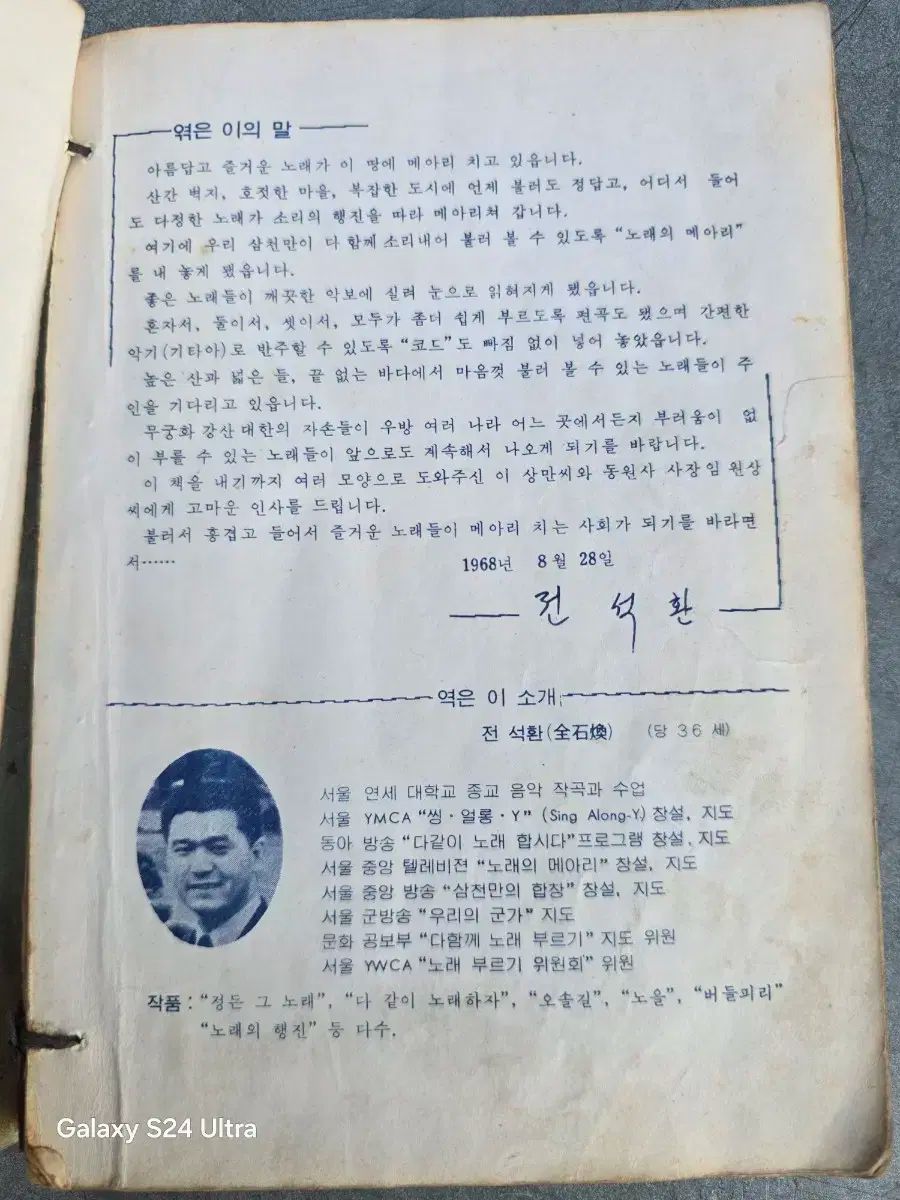 엮은 이의 말
아름답고 즐거운 노래가 이 땅에 메아리 치고 있읍니다.
산간 벽지, 호젓한 마을, 복잡한 도시에 언제 불러도 정답고, 어디서 들어
도 다정한 노래가 소리의 행진을 따라 메아리쳐 갑니다.
여기에 우리 삼천만이 다 함께 소리내어 불러 볼 수 있도록 “노래의 메아리”
를 내 놓게 됐읍니다.
좋은 노래들이 깨끗한 악보에 실려 눈으로 읽혀지게 됐읍니다.
혼자서, 둘이서, 셋이서, 모두가 좀더 쉽게 부르도록 편곡도 됐으며 간편한
악기(기타아)로 반주할 수 있도록 “코드”도 빠짐 없이 넣어 놓았읍니다.
높은 산과 넓은 들, 끝 없는 바다에서 마음껏 불러 볼 수 있는 노래들이 주
인을 기다리고 있읍니다.
무궁화 강산 대한의 자손들이 우방 여러 나라 어느 곳에서든지 부러움이 없
이 부를 수 있는 노래들이 앞으로도 계속해서 나오게 되기를 바랍니다.
이 책을 내기까지 여러 모양으로 도와주신 이 상만씨와 동원사 사장 임 원상
씨에게 고마운 인사를 드립니다.
불러서 흥겹고 들어서 즐거운 노래들이 메아리 치는 사회가 되기를 바라면
서……
1968년 8월 28일
전 석 환
엮은 이 소개
전 석환(全石煥) (당 36 세)
서울 연세 대학교 종교 음악 작곡과 수업
서울 YMCA “씽·얼롱·Y” (Sing Along-Y.) 창설, 지도
동아 방송 “다같이 노래 합시다”프로그램 창설, 지도
서울 중앙 텔레비젼 “노래의 메아리” 창설, 지도
서울 중앙 방송 “삼천만의 합창” 창설, 지도
서울 군방송 “우리의 군가” 지도
문화 공보부 “다함께 노래 부르기” 지도 위원
서울 YWCA “노래 부르기 위원회” 위원
작품 : “정든 그 노래”, “다 같이 노래하자”, “오솔길”, “노을”, “버들피리”
“노래의 행진” 등 다수.
Galaxy S24 Ultra